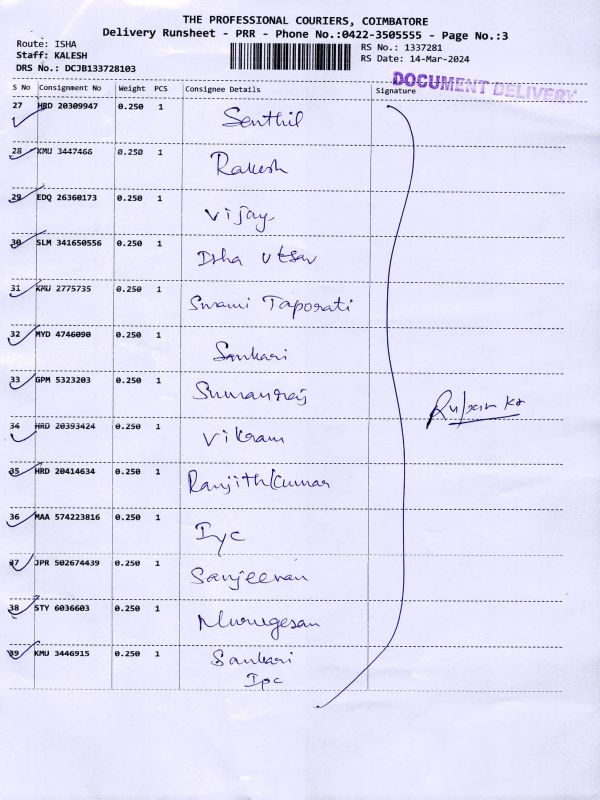 THE PROFESSIONAL COURIERS, COIMBATORE
Delivery Runsheet - PRR - Phone No.:0422-3505555 - Page No.:3
Route: ISHA
Staff: KALESH
DRS No.: DCJB133728103
RS No.: 1337281
RS Date: 14-Mar-2024
DOCUMENT DELIVERY
S No Consignment No Weight PCS Consignee Details Signature
27 HRD 20309947 0.250 1 Senthil
28 KMU 3447466 0.250 1 Rakesh
29 EDQ 26360173 0.250 1 Vijay
30 SLM 341650556 0.250 1 Isha Utsav
31 KMU 2775735 0.250 1 Swami Taporati
32 MYD 4746090 0.250 1 Sankari
33 GPM 5323203 0.250 1 Sumanraj
34 HRD 20393424 0.250 1 Vikram
35 HRD 20414634 0.250 1 Ranjithkumar
36 MAA 574223816 0.250 1 Iyc
37 JPR 502674439 0.250 1 Sanjeevan
38 STY 6036603 0.250 1 Murugesan
39 KMU 3446915 0.250 1 Sankari
Ipc